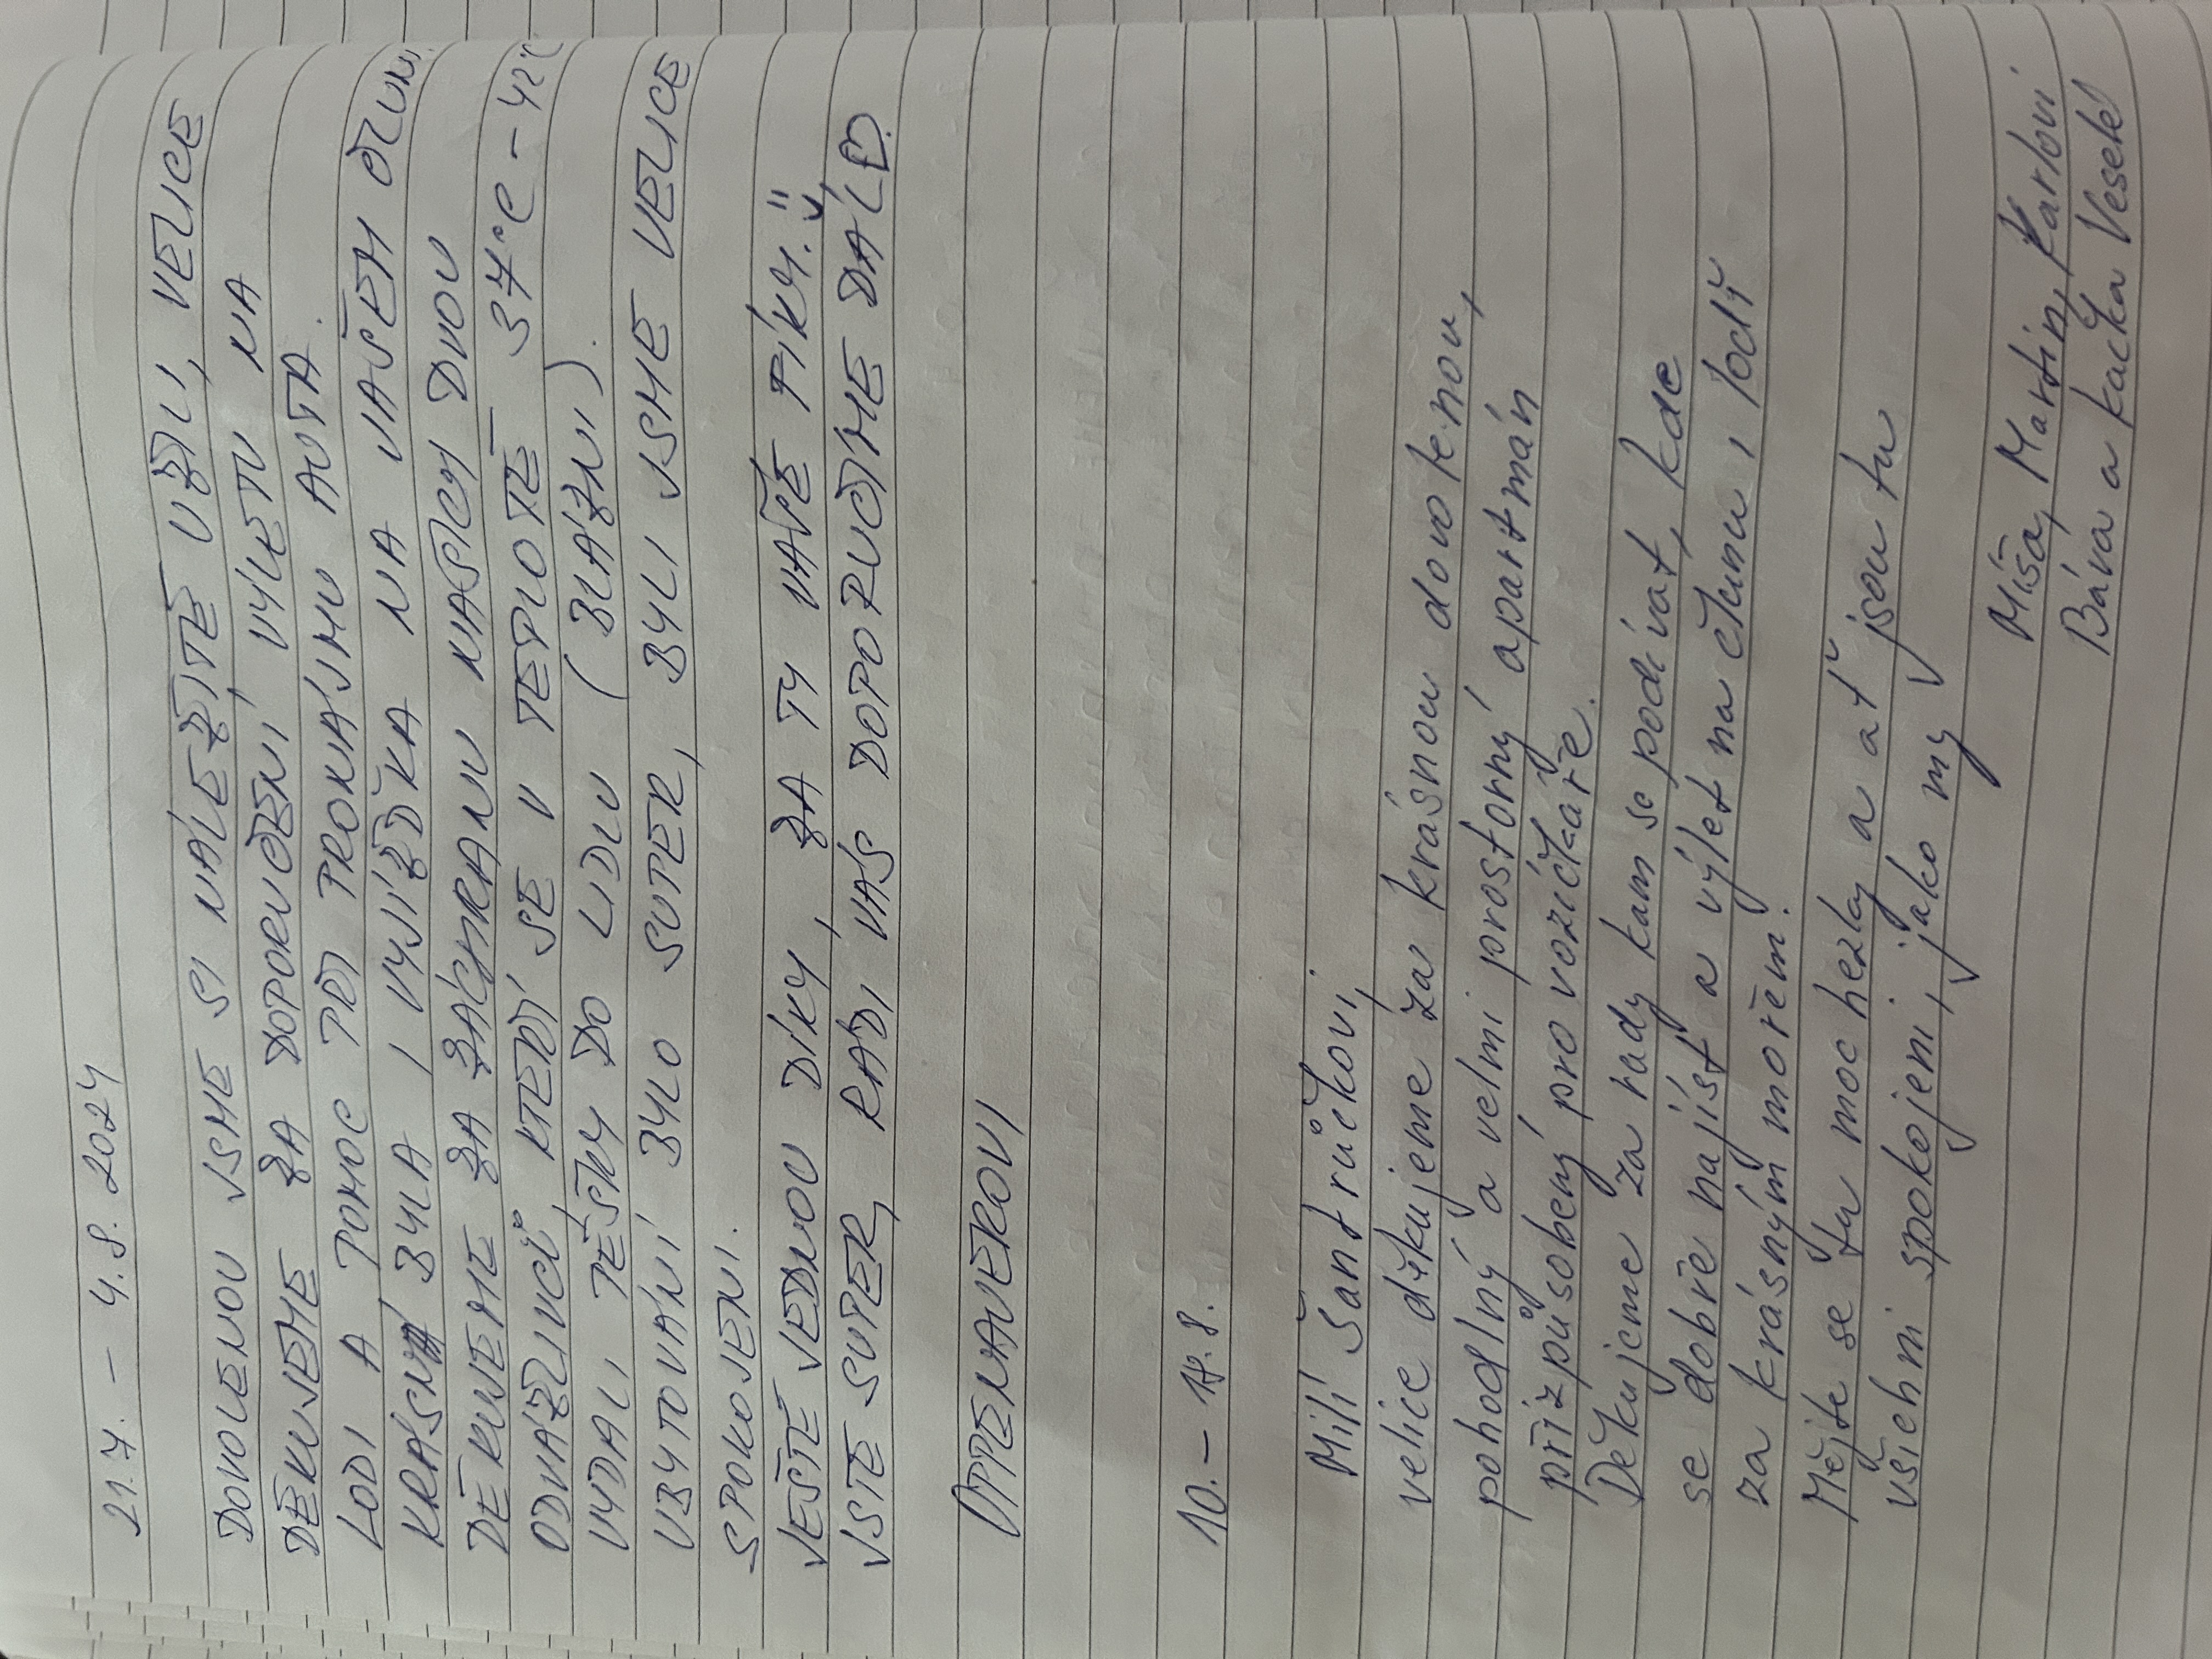 21.7. - 4.8. 2024
DOVOLENOU JSME SI NÁLEŽITĚ UŽILI, VELICE
DĚKUJEME ZA DOPORUČENÍ, VÝLETU NA
LODI A POMOC PŘI PRONAJMU AUTA.
KRÁSNÁ BYLA I VYJÍŽĎKA NA VAŠEM ČLUNU.
DĚKUJEME ZA ZÁCHRANU NAŠICH DVOU
ODVÁŽLIVCŮ, KTEŘÍ SE V TEPLOTĚ 37°C - 42°
VYDALI PĚŠKY DO LIDLU (BLÁZNI).
UBYTOVÁNÍ BYLO SUPER, BYLI JSME VELICE
SPOKOJENI.
JEŠTĚ JEDNOU DÍKY, ZA TY VAŠE FÍKY. :)
JSTE SUPER, RÁDI VÁS DOPORUČÍME DÁL
OPPENAUEROVI
10. - 17.8.
Milí Šantrůčkovi,
velice děkujeme za krásnou dovolenou,
pohodlný a velmi prostorný apartmán
přizpůsobený pro vozíčkáře.
Děkujeme za rady kam se podívat, kde
se dobře najíst a výlet na člunu i lodí
za krásným mořem.
Mějte se tu moc hezky a ať jsou tu
všichni spokojeni, jako my
Míša, Martin, Karlovi
Bára a kačka Veselé